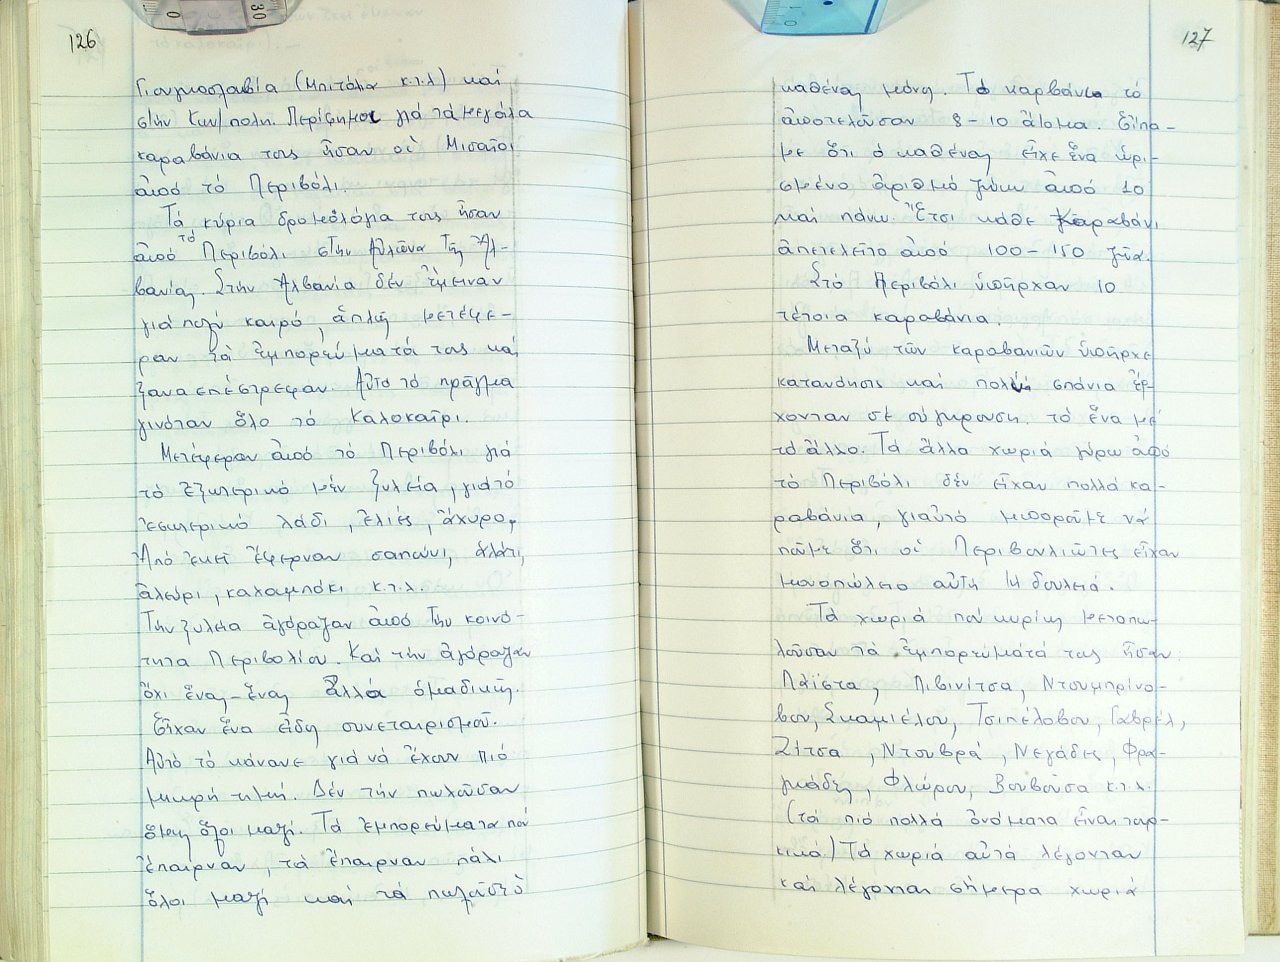 126
Γιουγκοσλαβία (Μπιτόλια κ.τ.λ) καί
στήν Κων/πολη. Περίφημοι γιά τά μεγάλα
καραβάνια τους ἦσαν οἱ Μισαῖοι
ἀπό τό Περιβόλι.
Τά κύρια δρομολόγια τους ἦσαν
ἀπό τό Περιβόλι στήν Αὐλῶνα τῆς Ἀλ-
βανίας. Στήν Ἀλβανία δέν ἔμειναν
γιά πολύ καιρό, ἁπλῶς μετέφε-
ραν τά ἐμπορεύματά τους καί
ξαναεπέστρεφαν. Αὐτό τό πρᾶγμα
γινόταν ὅλο τό καλοκαῖρι.
Μετέφεραν ἀπό τό Περιβόλι γιά
τό ἐξωτερικό μέν ξυλεία, γιά τό
ἐσωτερικό λάδι, ἐλιές, ἄχυρο,
Ἀπό ἐκεῖ ἔφερναν σαπούνι, ἁλάτι,
ἀλεύρι, καλαμπόκι κ.τ.λ.
Τήν ξυλεία ἀγόραζαν ἀπό τήν κοινό-
τητα Περιβολίου. Καί τήν ἀγόραζαν
ὄχι ἕνας-ἕνας ἀλλά ὁμαδικῶς.
Εἶχαν ἕνα εἶδος συνεταιρισμοῦ.
Αὐτό τό κάνανε γιά νά ἔχουν πιό
μικρή τιμή. Δέν τήν πωλοῦσαν
ὅμως ὅλοι μαζί. Τά ἐμπορεύματα πού
ἔπαιρναν, τά ἔπαιρναν πάλι
ὅλοι μαζί καί τά πωλοῦσε ὁ
127
καθένας μόνος. Τά καρβάνια τό
ἀποτελοῦσαν 8-10 ἄτομα. Εἴπα-
με ὅτι ὁ καθένας εἶχε ἕνα ὡρι-
σμένο ἀριθμό ζώων ἀπό 10
καί πάνω. Ἔτσι κάθε καραβάνι
ἀπετελεῖτο ἀπό 100-150 ζῶα.
Στό Περιβόλι ὑπῆρχαν 10
τέτοια καραβάνια.
Μεταξύ τῶν καραβανιῶν ὑπῆρχε
κατανόησις καί πολύ σπάνια ἔρ-
χονταν σέ σύγκρουση τό ἕνα μέ
τό ἄλλο. Τά ἄλλα χωριά γύρω ἀπό
τό Περιβόλι δέν εἶχαν πολλά κα-
ραβάνια, γιαὐτό μποροῦμε νά
ποῦμε ὅτι οἱ Περιβολιῶτες εἶχαν
μονοπώλειο αὐτή τή δουλειά.
Τά χωριά πού κυρίως μεταπω-
λοῦσαν τά ἐμπορεύματά τους ἦσαν:
Παλῃστα, Λιβινίτσα, Ντουμπρίνο-
βου, Σκαμιέλου, Τσιπέλοβου, Γαβρέλ,
Ζίτσα, Ντουβρά, Νεγάδες, Φρα-
γκάδες, Φλώρου, Βουβοῦσα κ.τ.λ.
(τά πιό πολλά ὀνόματα εἶναι τουρ-
κικά) Τά χωριά αὐτά λέγονταν
καί λέγονται σήμερα χωριά